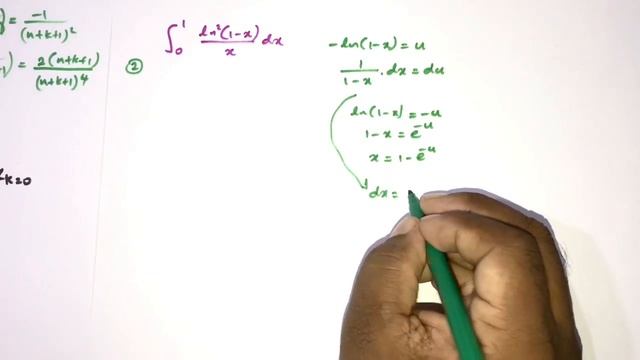 ) = -1/(n+k+1)²
) = 2(n+k+1)/(n+k+1)⁴
k=0
②
∫₀¹ ln²(1-x)/x dx
-ln(1-x) = u
1/(1-x) . dx = du
ln(1-x) = -u
1-x = e⁻ᵘ
x = 1 - e⁻ᵘ
dx =